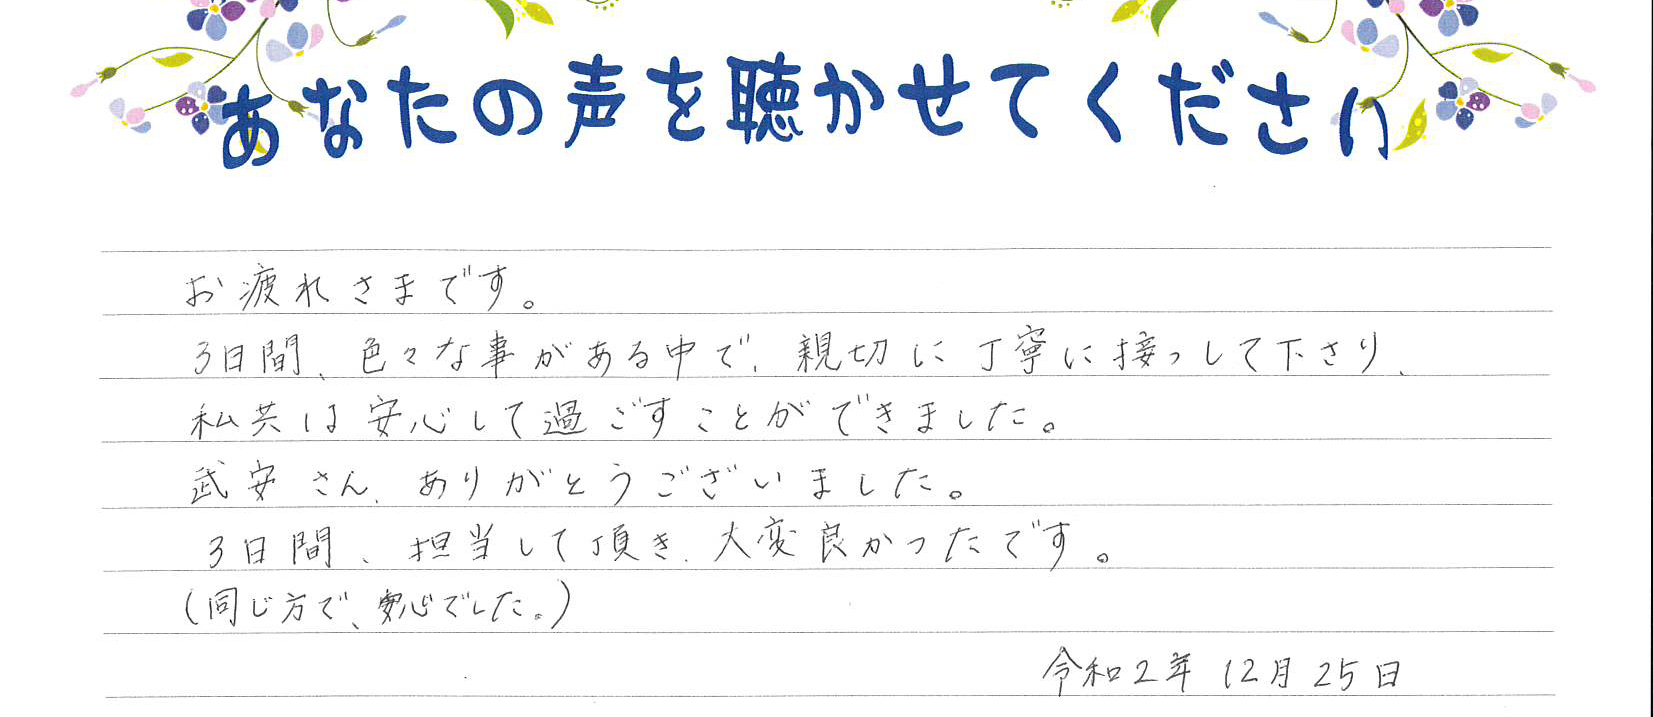 あなたの声を聴かせてください
お疲れさまです。
3日間、色々な事がある中で、親切に丁寧に接っして下さり、
私共は安心して過ごすことができました。
武安さん、ありがとうございました。
3日間、担当して頂き、大変良かったです。
(同じ方で、安心でした。)
令和2年12月25日